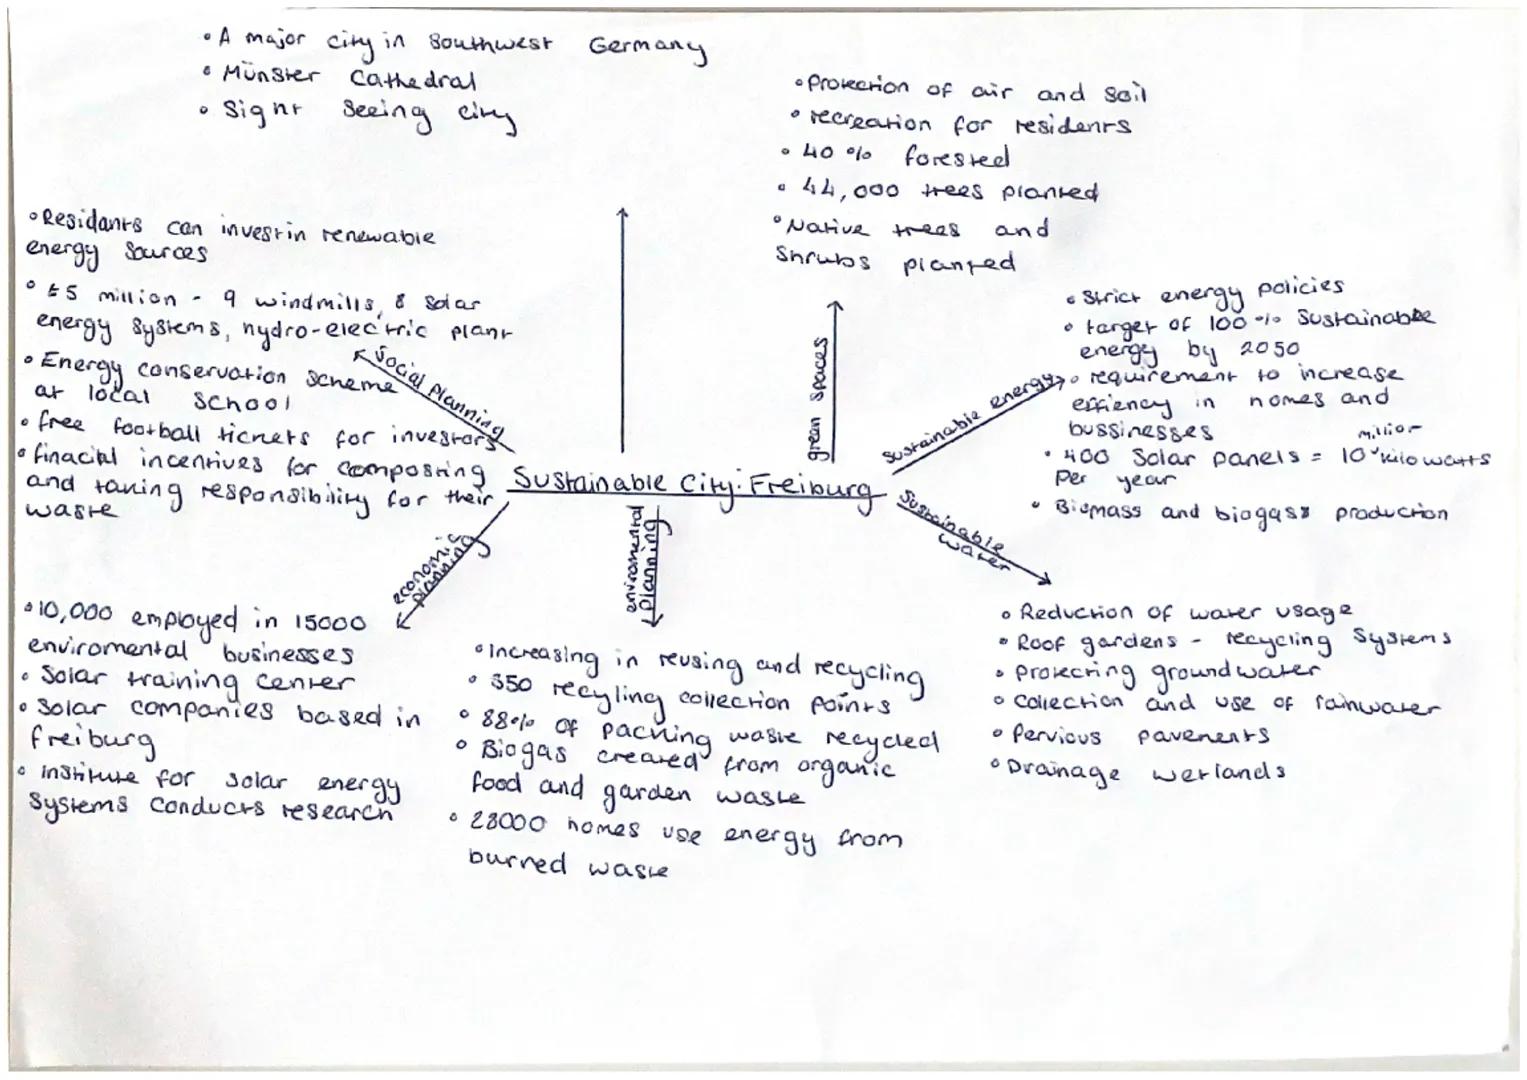 • A major city in Southwest Germany
• Münster Cathedral
• Sight Seeing city
• Protection of air and soil
• recreation for residents
• 40 % forested
• 44,000 trees planted
• Native trees and
Shrubs planted
• Residants can invest in renewable
energy Sources
• £5 million - 9 windmills, 8 Solar
energy systems, hydro-electric plant
• Energy conservation scheme
at local School
• free football tickets for investors
• finacial incentives for composting
and taking responsibility for their
waste
Social planning
green spaces
Sustainable energy
• Strict energy policies
• target of 100 % Sustainable
energy by 2050
• requirement to increase
effiency in homes and
bussinesses
• 400 Solar panels = 10 million kilowatts
Per year
• Biomass and biogass production
Sustainable City: Freiburg
economic
planning
enviromental
planning
Sustainable
water
• 10,000 employed in 15000
enviromental businesses
• Solar training center
• Solar companies based in
freiburg
• institute for solar energy
Systems Conducts research
• increasing in reusing and recycling
• 350 recyling collection points
• 88% of packing waste recycled
• Biogas created from organic
food and garden waste
• 28000 homes use energy from
burned waste
• Reduction of water usage
• Roof gardens - recycling Systems
• protecting groundwater
• Collection and use of rainwater
• Pervious pavements
• Drainage wetlands